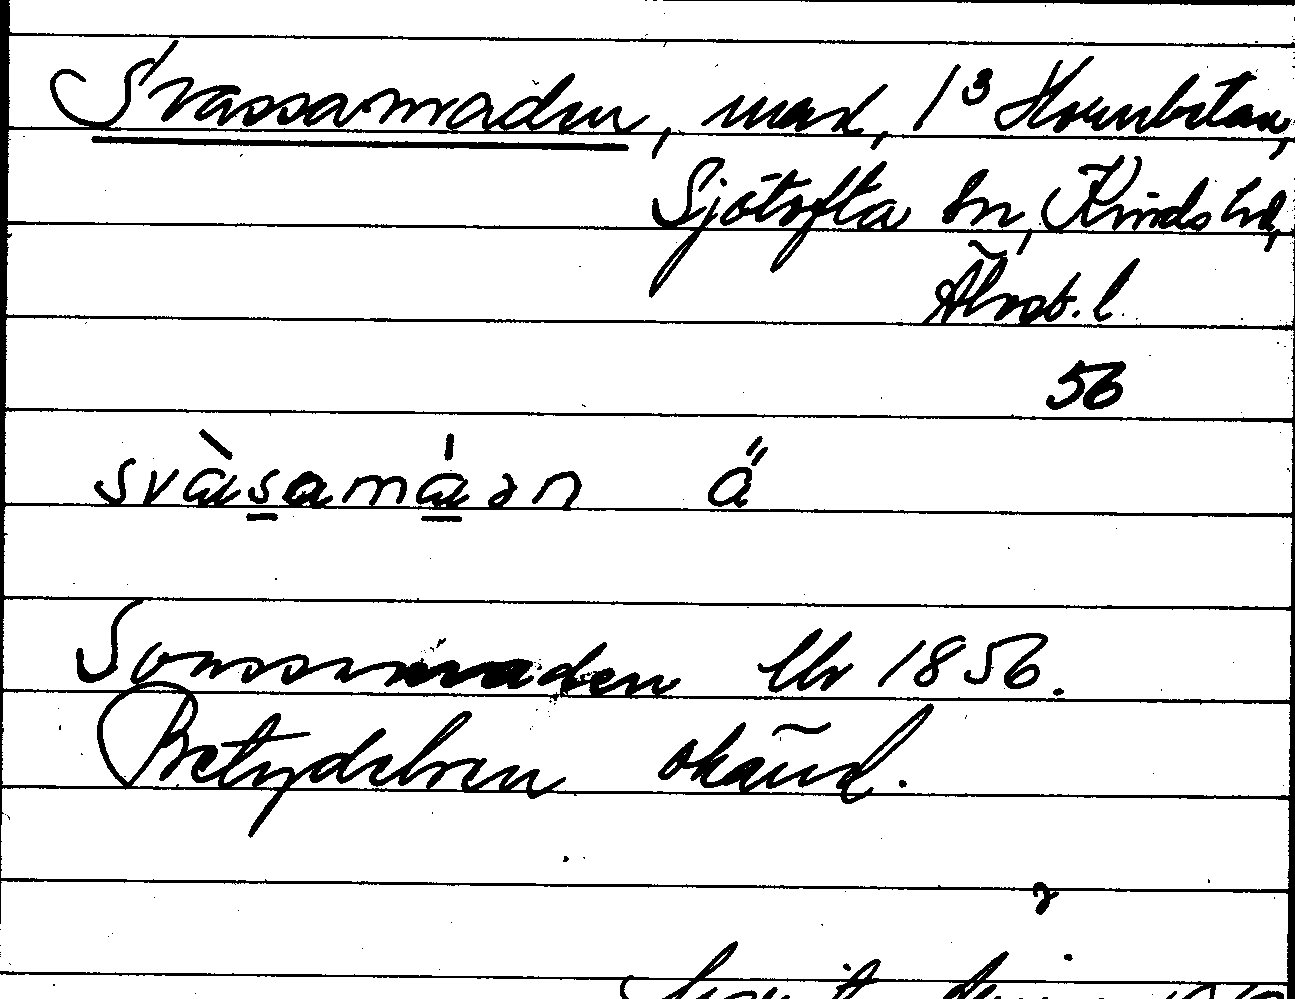 Svassamaden, mad, 1³ Hornbetan,
Sjötofta sn, Kinds hd,
Älvsb. l.
56
svàsamáən ä
maden Uk 1856.
Betydelsen okänd.